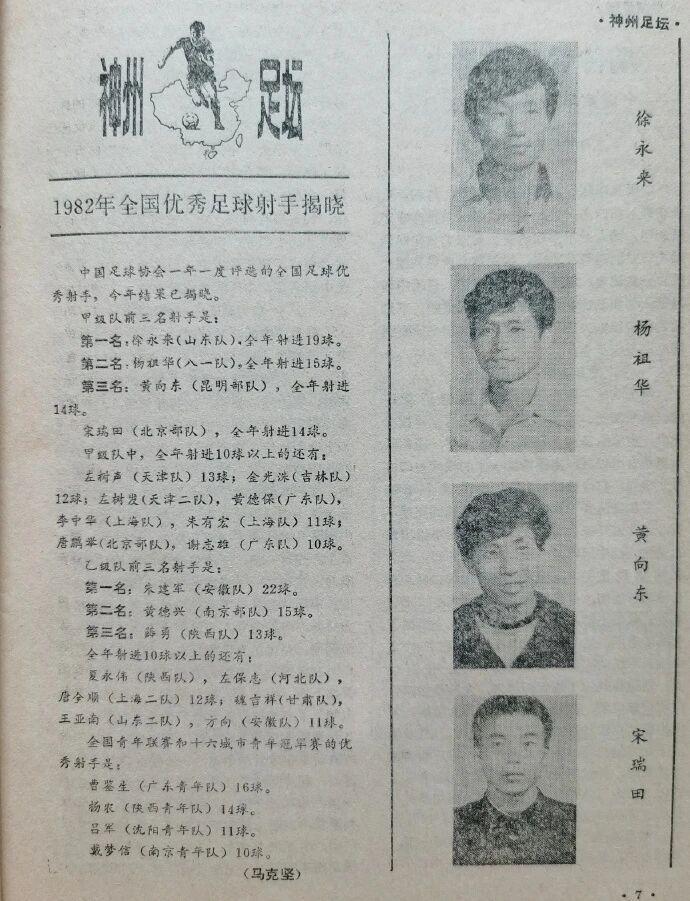 ·神州足坛·
神州足坛
1982年全国优秀足球射手揭晓
中国足球协会一年一度评选的全国足球优
秀射手，今年结果已揭晓。
甲级队前三名射手是：
第一名：徐永来(山东队)，全年射进19球。
第二名：杨祖华(八一队)，全年射进15球。
第三名：黄向东（昆明部队），全年射进
14球。
宋瑞田（北京部队），全年射进14球。
甲级队中，全年射进10球以上的还有：
左树声（天津队）13球；金光洙(吉林队)
12球；左树发(天津二队)，黄德保(广东队)，
李中华（上海队），朱有宏（上海队）11球；
唐鹏举(北京部队)，谢志雄（广东队）10球。
乙级队前三名射手是：
第一名：朱建军（安徽队）22球。
第二名：黄德兴（南京部队）15球。
第三名：薛勇（陕西队）13球。
全年射进10球以上的还有：
夏永伟（陕西队），左保志（河北队），
唐全顺（上海二队）12球；魏吉祥(甘肃队)，
王亚南（山东二队），方向（安徽队）11球。
全国青年联赛和十六城市青年冠军赛的优
秀射手是：
曹鉴生（广东青年队）16球。
杨农（陕西青年队）14球。
吕军（沈阳青年队）11球。
戴梦信（南京青年队）10球。
（马克坚）
徐永来
杨祖华
黄向东
宋瑞田
·7·